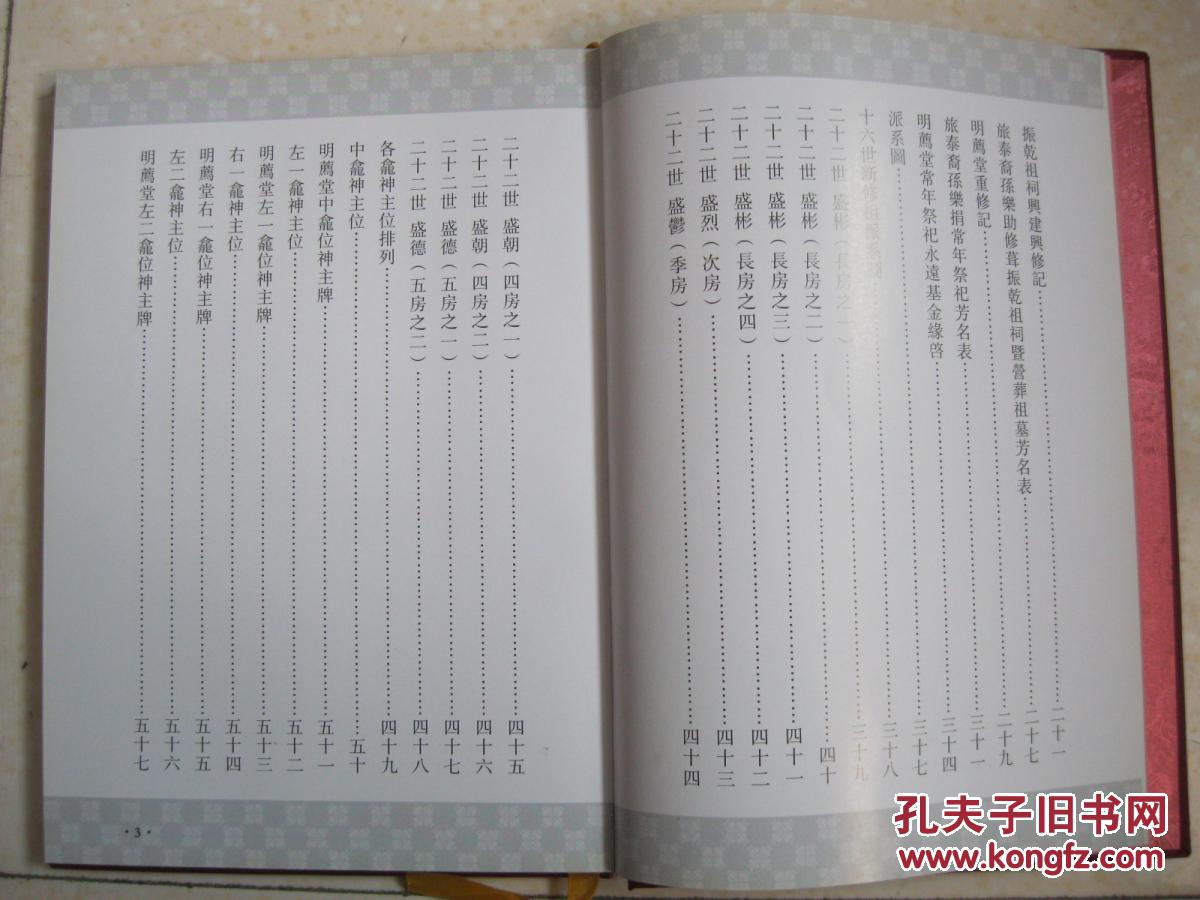 振乾祖祠興建興修記……二十一
旅泰裔孫樂助修葺振乾祖祠暨營葬祖墓芳名表……二十七
明薦堂重修記……二十九
旅泰裔孫樂捐常年祭祀芳名表……三十一
明薦堂常年祭祀永遠基金緣啓……三十四
派系圖……三十七
十六世新修祖……三十八
二十二世 盛彬（長房之一）……三十九
二十二世 盛彬（長房之二）……四十
二十二世 盛彬（長房之三）……四十一
二十二世 盛彬（長房之四）……四十二
二十二世 盛烈（次房）……四十三
二十二世 盛鬱（季房）……四十四
二十二世 盛朝（四房之一）……四十五
二十二世 盛朝（四房之二）……四十六
二十二世 盛德（五房之一）……四十七
二十二世 盛德（五房之二）……四十八
各龕神主位排列……四十九
中龕神主位……五十
明薦堂中龕位神主牌……五十一
左一龕神主位……五十二
明薦堂左一龕位神主牌……五十三
右一龕神主位……五十四
明薦堂右一龕位神主牌……五十五
左二龕神主位……五十六
明薦堂左二龕位神主牌……五十七
·3·
孔夫子旧书网
www.kongfz.com